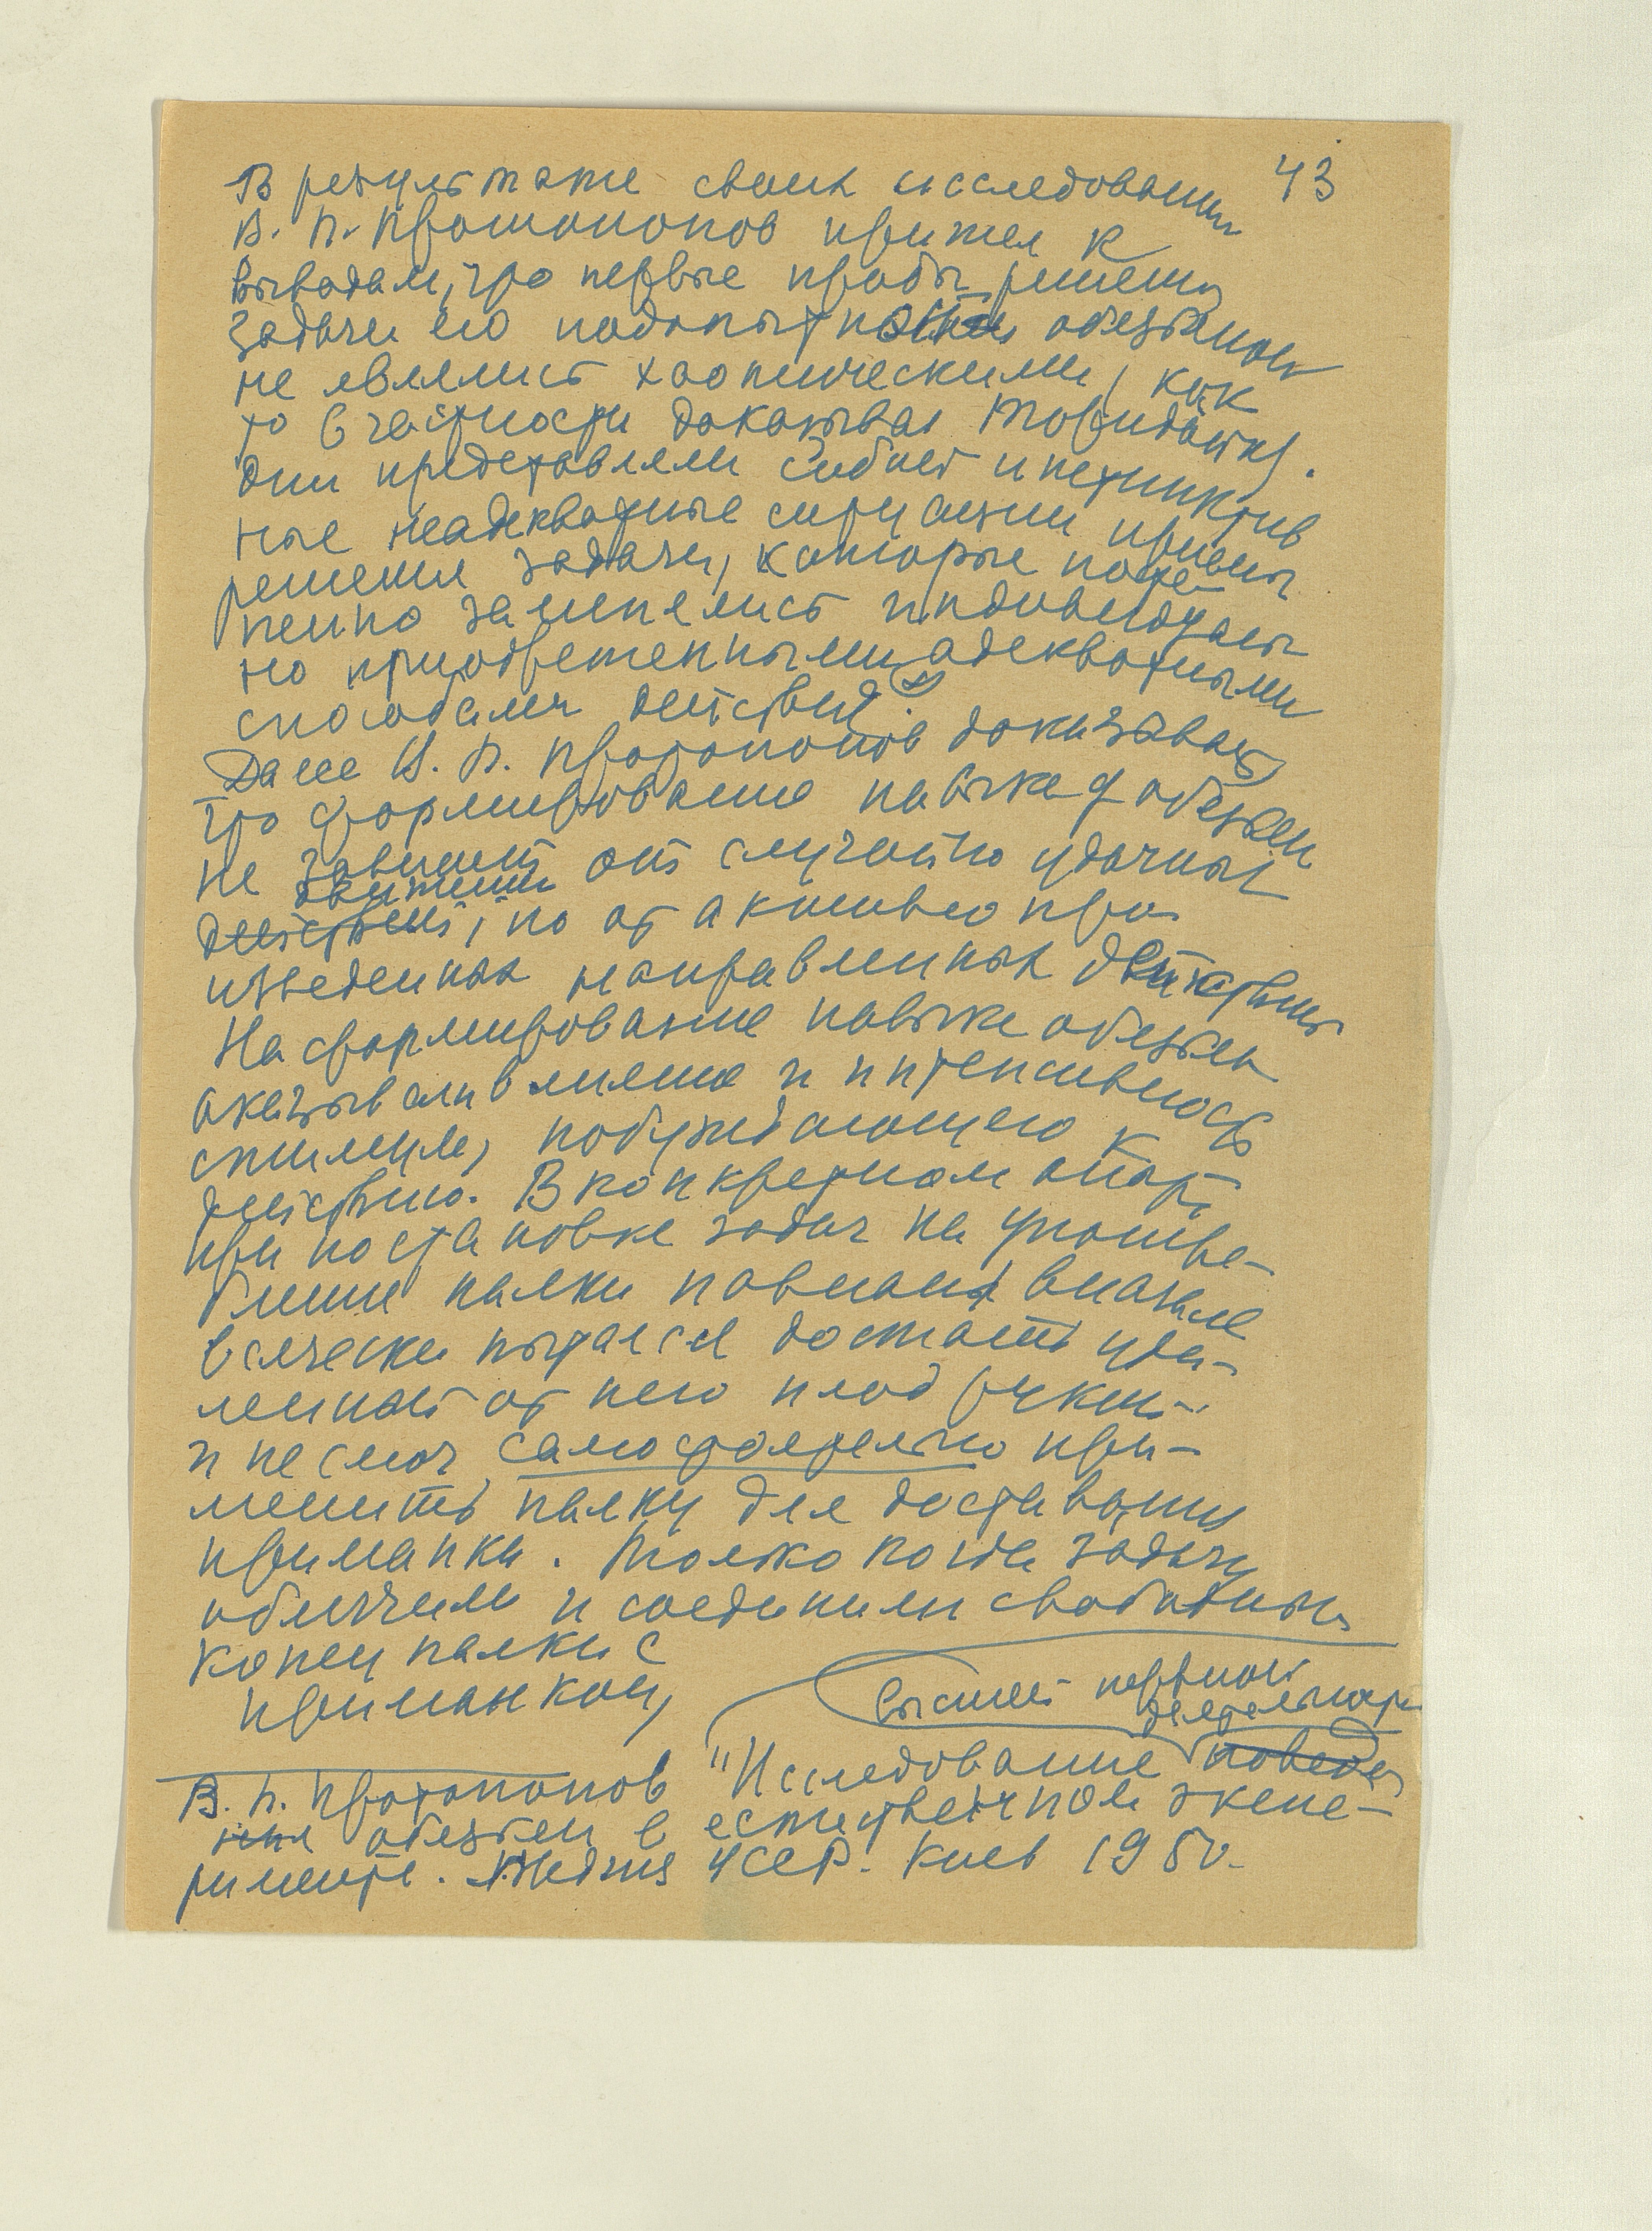 43
В результате своих исследований
В. П. Протопопов пришел к
выводам, что первые пробы решения
задачи его подопытной обезьяной
не являлись хаотическими, как
то в частности доказывал Торндайк.
Они представляли собой инстинктив
ные неадекватные ситуации приемы
решения задачи, которые посте
пенно заменялись индивидуаль
но приобретенными адекватными
способами действия.
Далее В. П. Протопопов доказывает,
что формирование навыка у обезьян
не зависит от случайно удачных
движений
действий, но от активно про
изведенных направленных действий
На формирование навыка обезьян
оказывали влияние и интенсивность
стимула, побуждающего к
действию. В конкретном опыте
при постановке задач на употре-
бление палки павиан вначале
всячески пытался достать уда-
ленный от него плод руками
и не смог самостоятельно при-
менить палку для доставания
приманки. Только когда задачу
облегчили и соединили свободный
конец палки с
приманкой,
высшей нервной
деятельности
В. П. Протопопов "Исследование поведе
ния обезьян в естественном экспе-
рименте. УССР. Киев 1950.